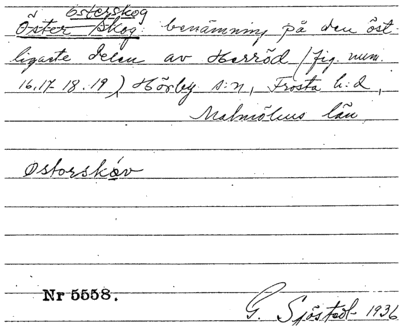 Österskog
Öster Skog: benämning på den öst-
ligaste delen av Harröd (fig. num.
16.17 18.19), Hörby s:n, Frosta h:d,
Malmöhus län.
ostorskóv
Nr 5558.
G. Sjöstedt 1936